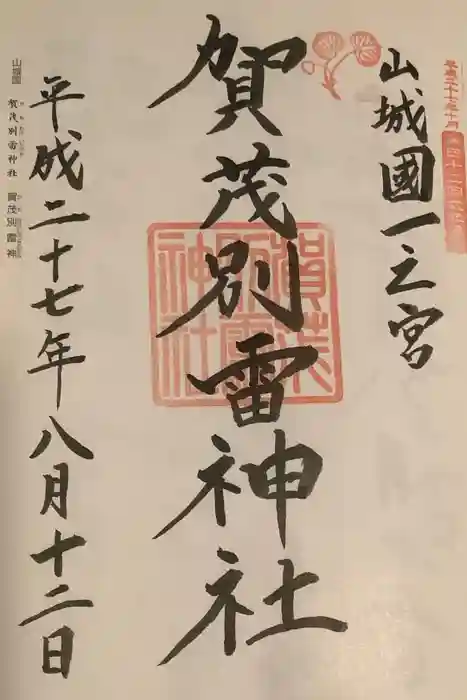 山城國一之宮
賀茂別雷神社
賀茂別雷神社
平成二十七年八月十二日
山城国 賀茂別雷神社 賀茂別雷神